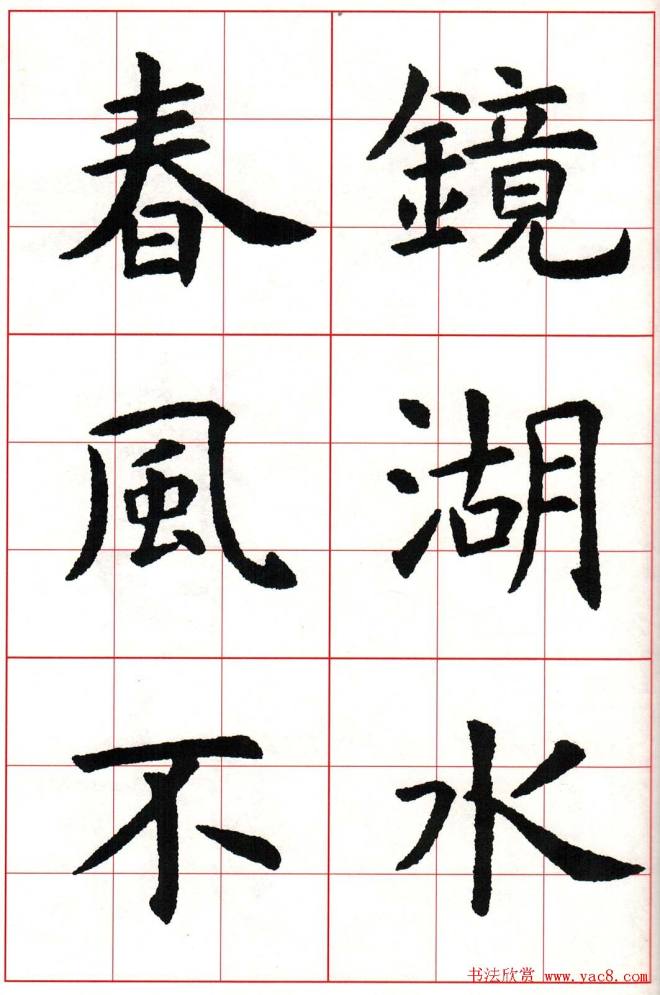 鏡湖水
春風不
书法欣赏 www.yac8.com